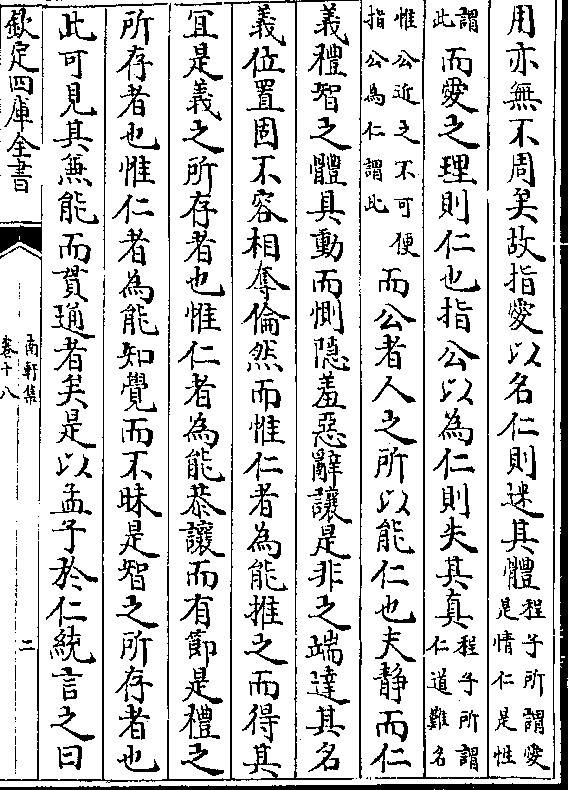 用亦無不周矣故指愛以名仁則迷其體程子所謂愛是情仁是性
謂此而愛之理則仁也指公以為仁則失其真程子所謂仁道難名
惟公近之不可便指公為仁謂此而公者人之所以能仁也夫静而仁
義禮智之體具動而惻隠羞惡辭讓是非之端達其名
義位置固不容相奪倫然而惟仁者為能推之而得其
宜是義之所存者也惟仁者為能恭讓而有節是禮之
所存者也惟仁者為能知覺而不昧是智之所存者也
此可見其兼能而貫通者矣是以孟子於仁統言之曰
欽定四庫全書
南軒集
卷十八
二